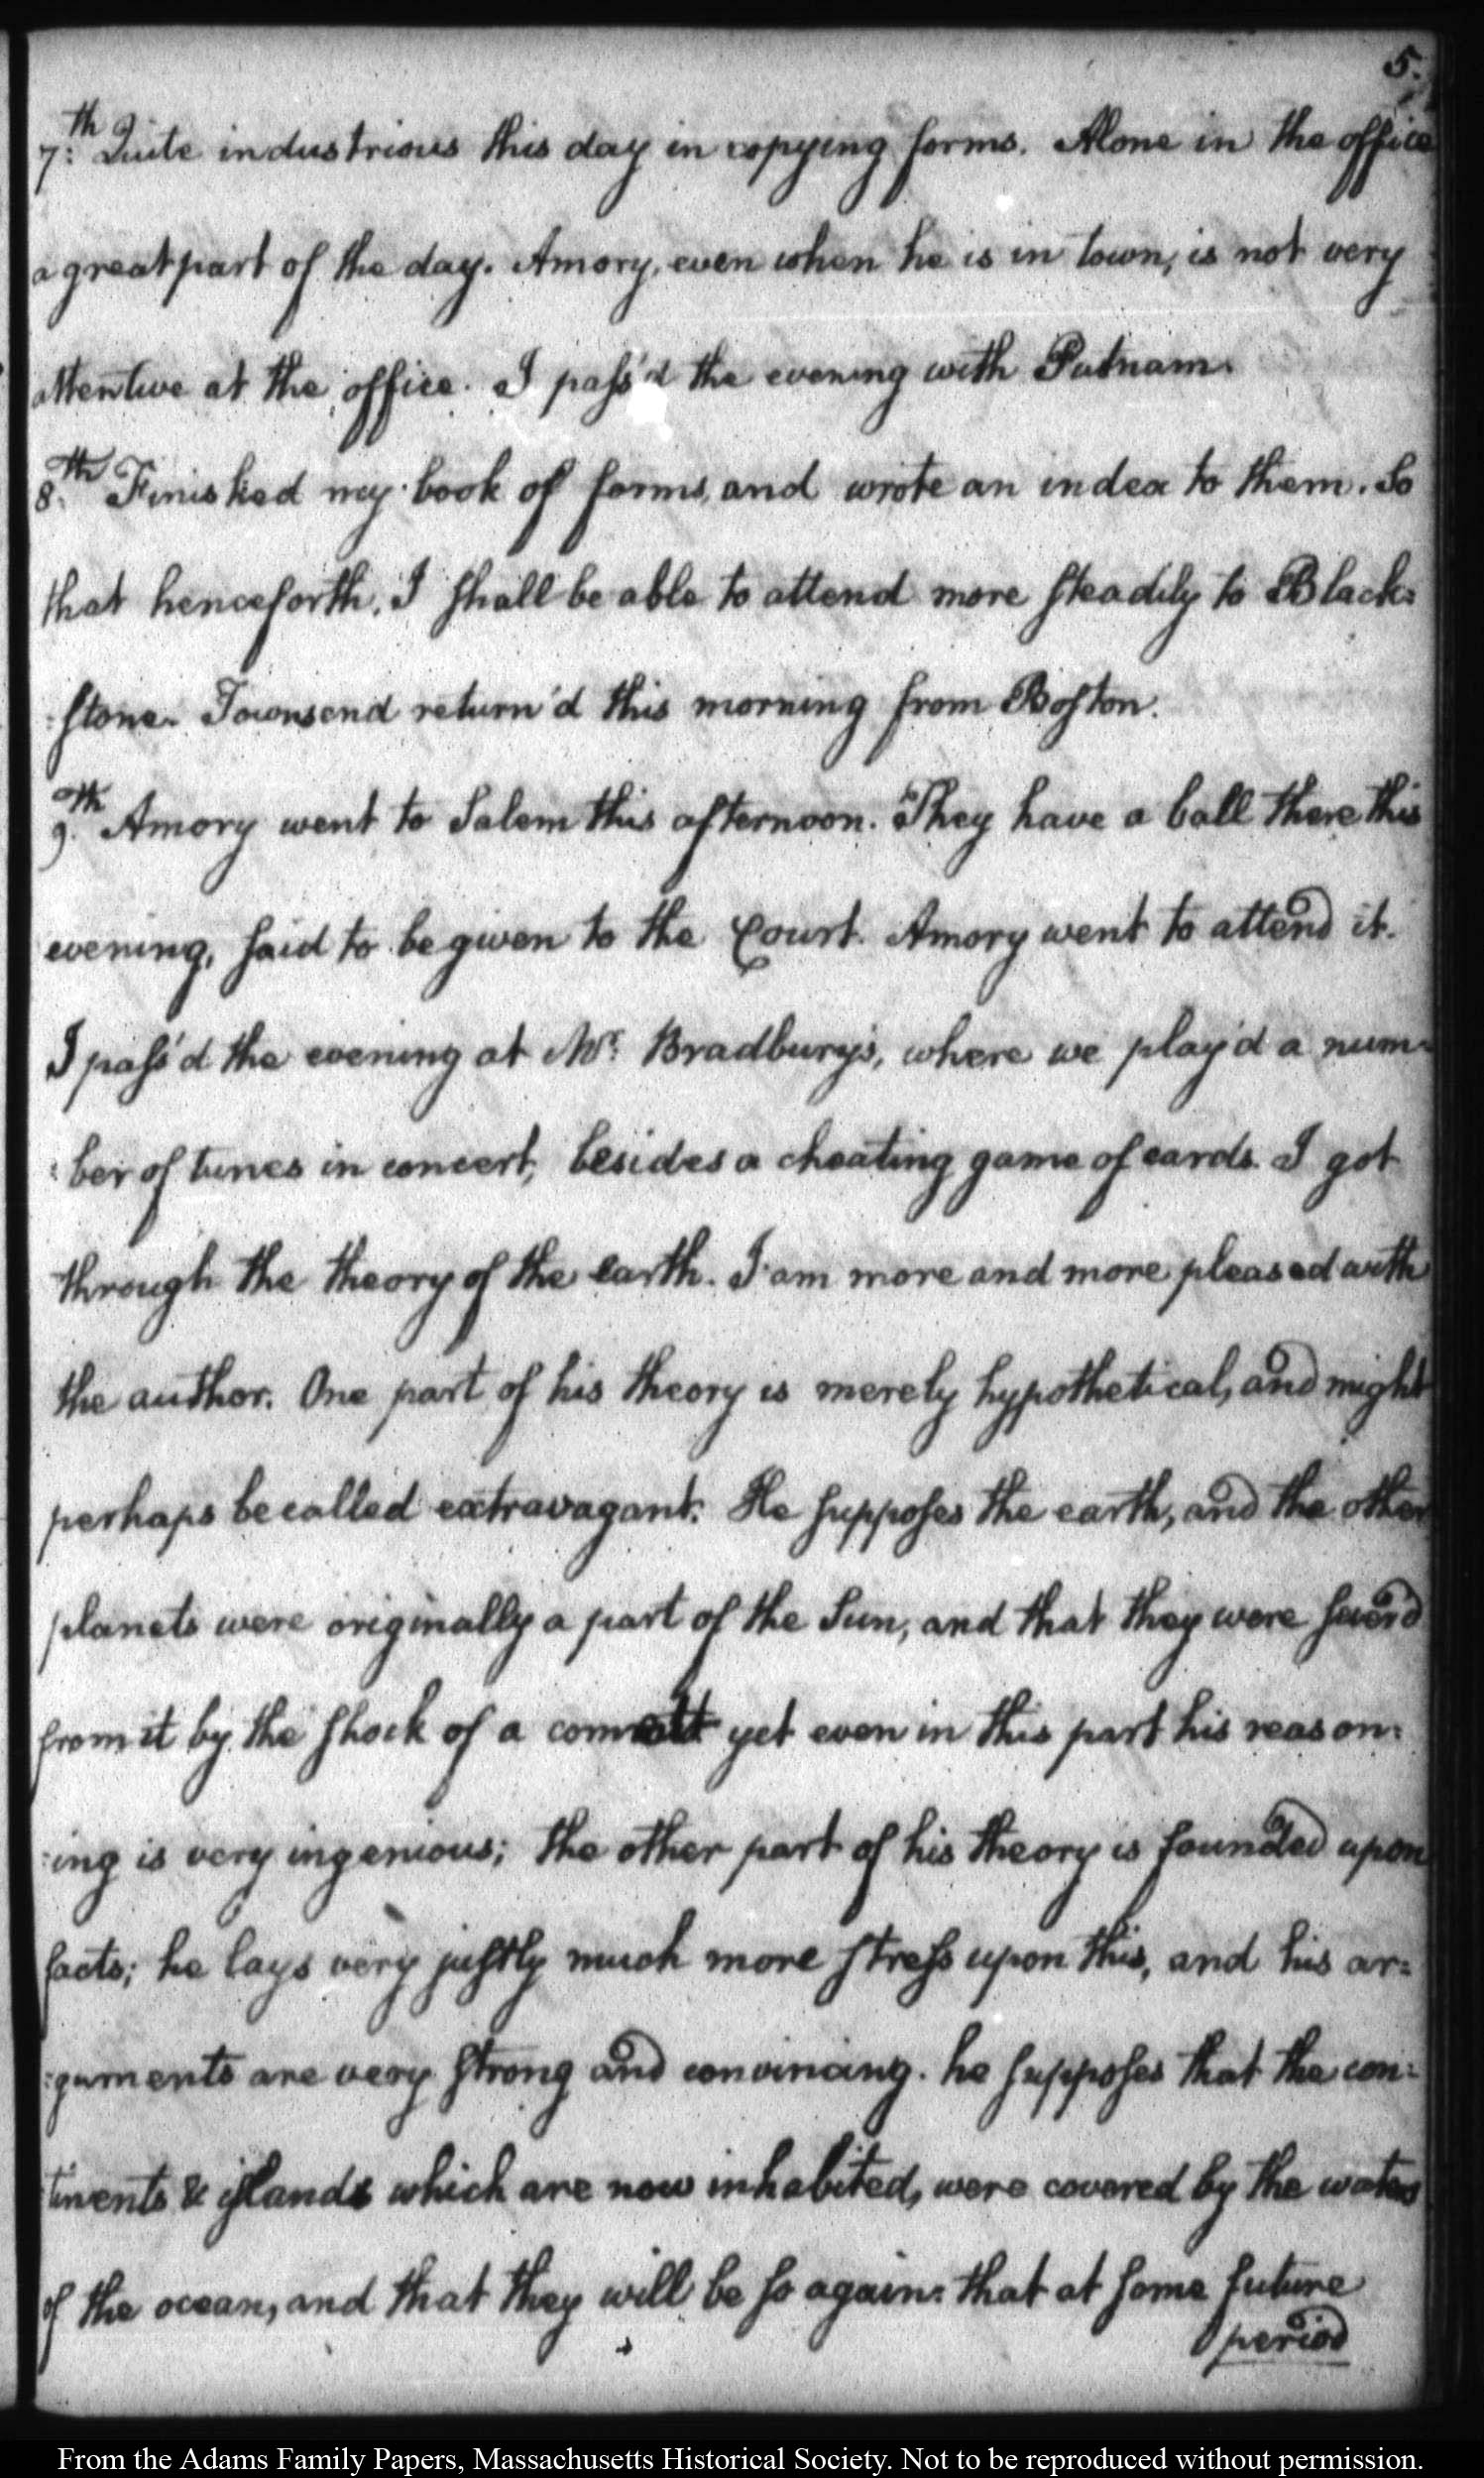 5.
7:th Quite industrious this day in copying forms. Alone in the office
a great part of the day. Amory, even when he is in town, is not very
attentive at the office. I pass'd the evening with Putnam.
8.th Finished my book of forms, and wrote an index to them. So
that henceforth, I shall be able to attend more steadily to Black:
:stone. Townsend return'd this morning from Boston.
9.th Amory went to Salem this afternoon. They have a ball there this
evening, said to be given to the Court. Amory went to attend it.
I pass'd the evening at Mr. Bradbury's, where we play'd a num:
:ber of tunes in concert, besides a cheating game of cards. I got
through the theory of the earth. I am more and more pleased with
the author. One part of his theory is merely hypothetical, and might
perhaps be called extravagant. He supposes the earth, and the other
planets were originally a part of the Sun, and that they were sever'd
from it by the shock of a yet even in this part his reason:
:ing is very ingenious; the other part of his theory is founded upon
facts; he lays very justly much more stress upon this, and his ar:
:guments are very strong and convincing. he supposes that the con:
:tinents & islands which are now inhabited, were covered by the waters
of the ocean, and that they will be so again: that at some future
period
From the Adams Family Papers, Massachusetts Historical Society. Not to be reproduced without permission.